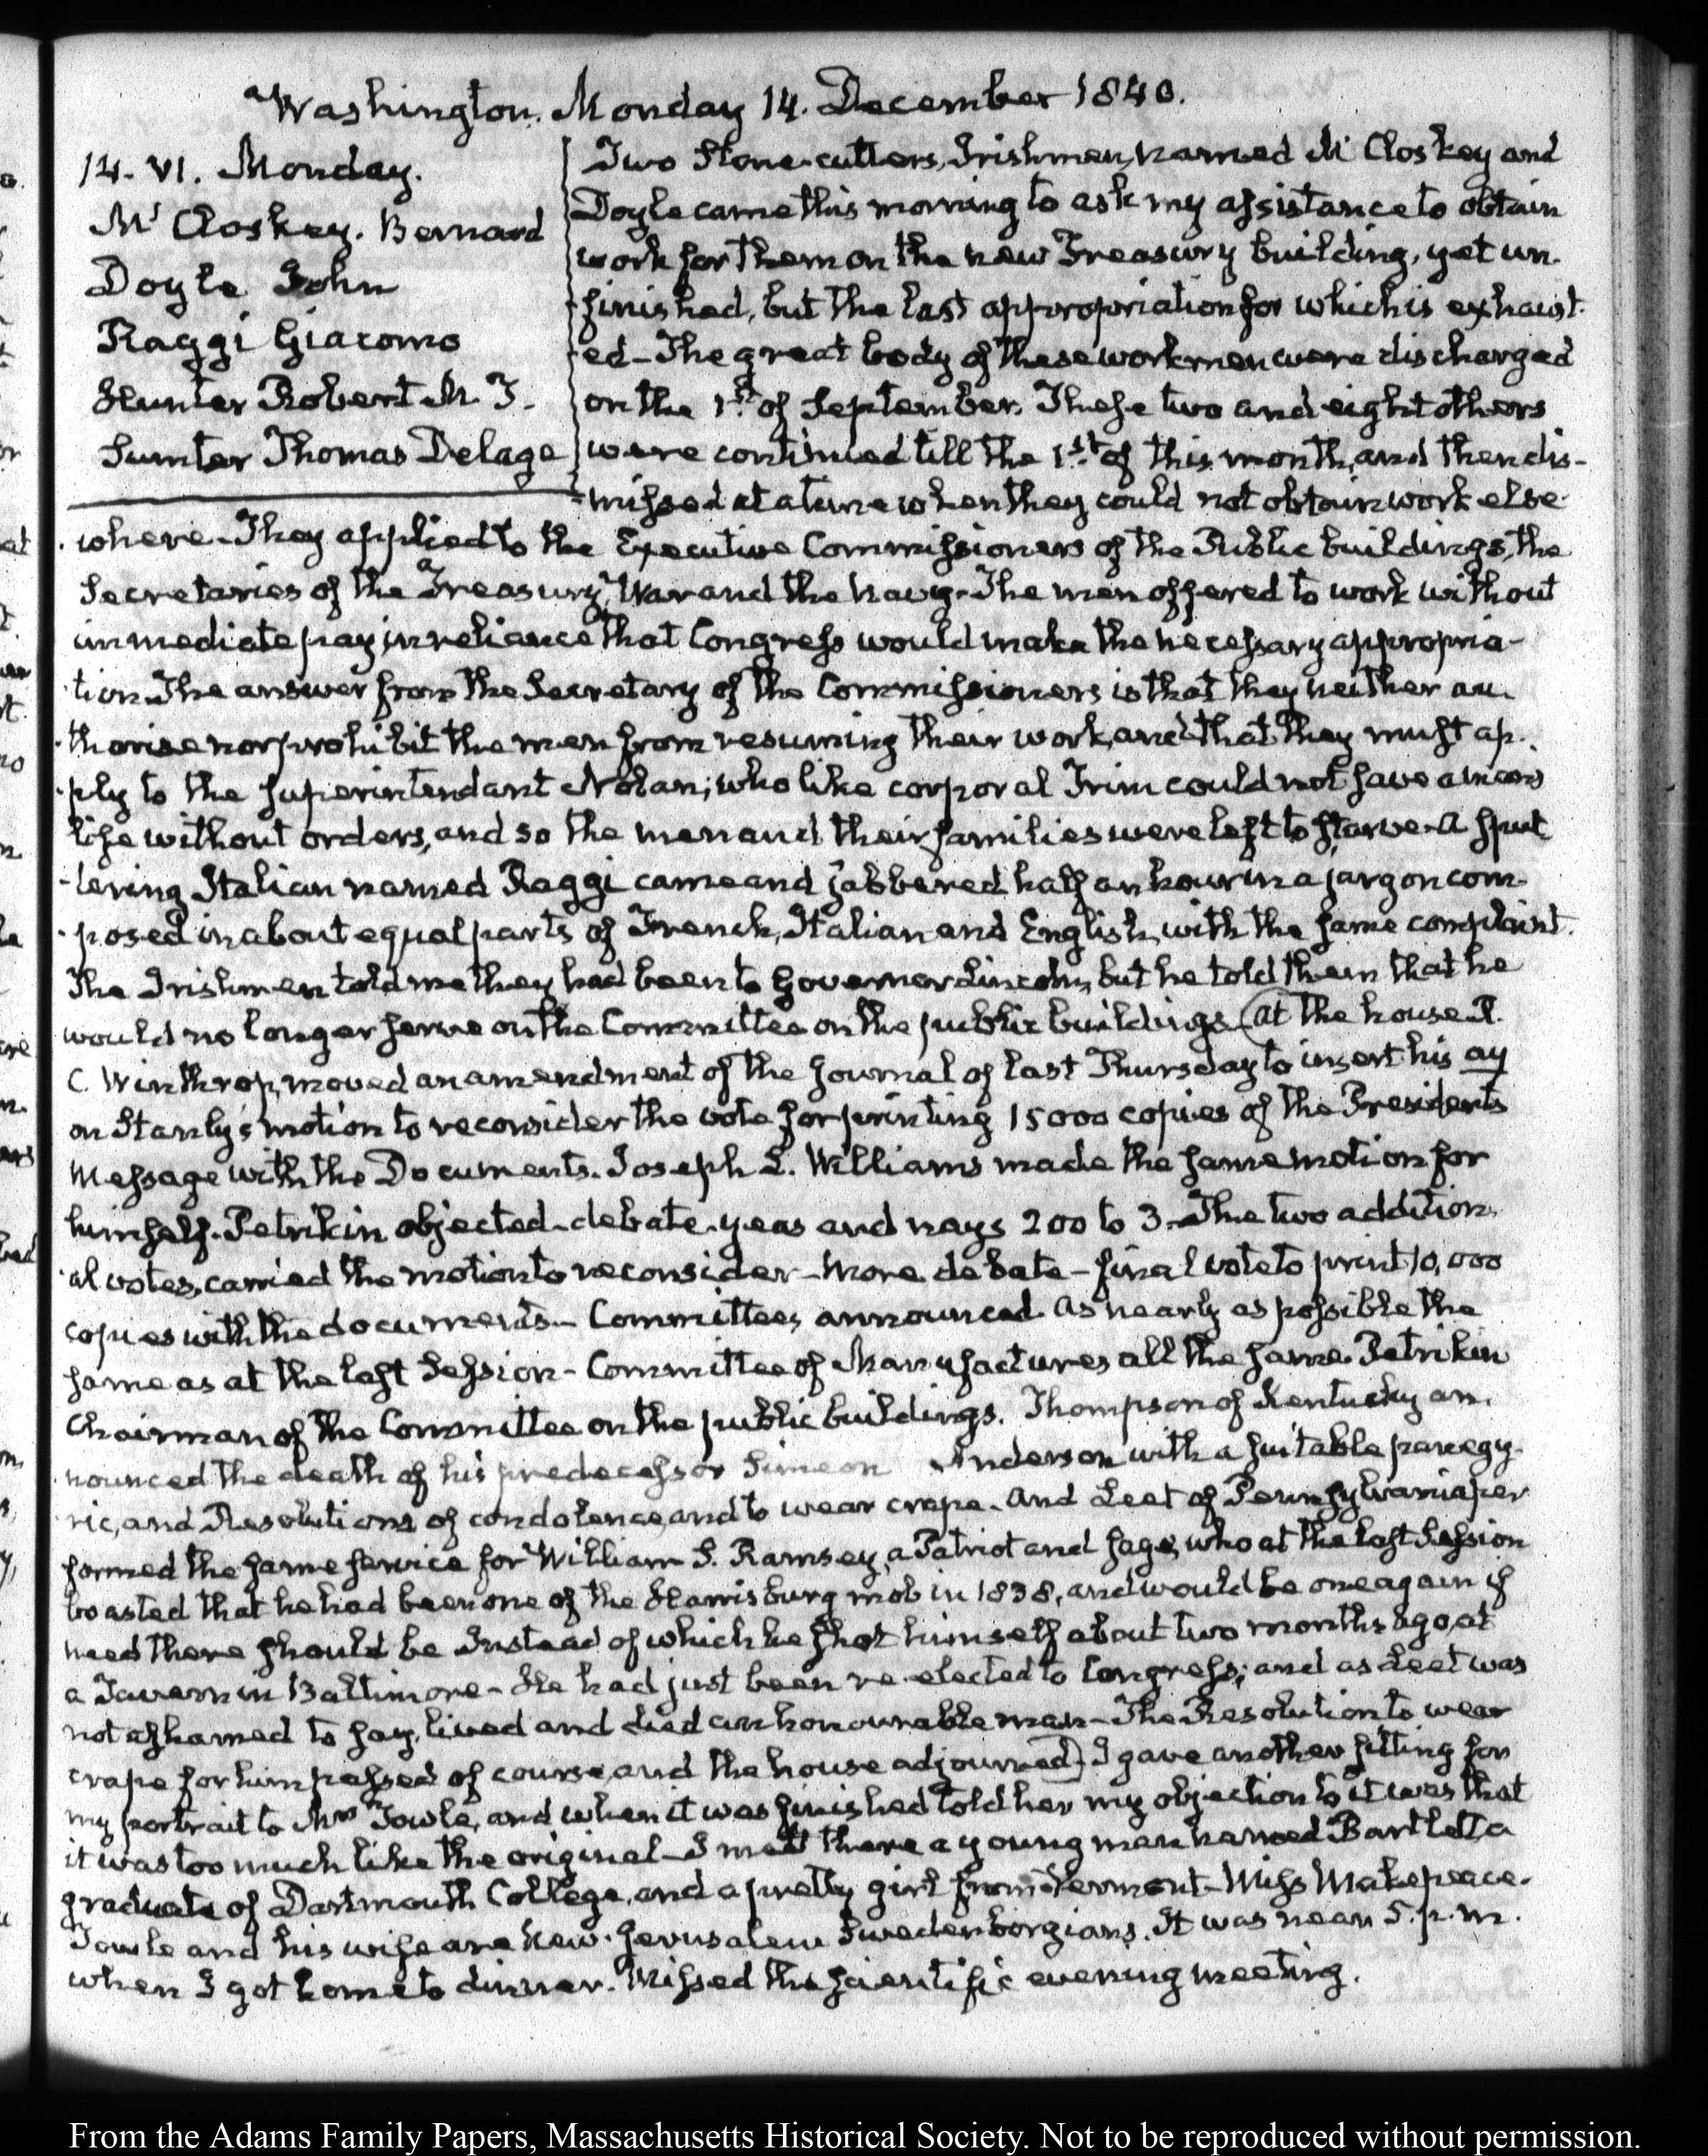 Washington. Monday 14. December 1840.
14. VI. Monday.
Mc Closkey. Bernard
Doyle John
Raggi Giacomo
Hunter Robert M. T.
Sumter Thomas Delage
Two Stone-cutters, Irishmen, named Mc Closkey and
Doyle came this morning to ask my assistance to obtain
work for them on the new Treasury building, yet un-
-finished, but the last appropriation for which is exhaust-
-ed– The great body of these workmen were discharged
on the 1st of September. These two and eight others
were continued till the 1st of this month, and then dis-
-missed at a time when they could not obtain work else-
-where– They applied to the Executive Commissioners of the Public buildings, the
Secretaries of the Treasury, War and the Navy– The men offered to work without
immediate pay in reliance that Congress would make the necessary appropria-
-tion. The answer from the Secretary of the Commissioners is that they neither au-
-thorise nor prohibit the men from resuming their work, and that they must ap-
-ply to the Superintendant Nolan; who like corporal Trim could not save a man's
life without orders, and so the men and their families were left to starve– A sput-
-tering Italian named Raggi came and jabbered half an hour in a jargon com-
-posed in about equal parts of French, Italian and English, with the same complaint.
The Irishmen told me they had been to Governor Lincoln, but he told them that he
would no longer serve on the Committee on the public buildings (at the house R.
C. Winthrop, moved an amendment of the Journal of last Thursday to insert his ay
on Stanly's motion to reconsider the vote for printing 15000 copies of the Presidents
Message with the Documents. Joseph L. Williams made the same motion for
himself. Petrikin objected– debate– yeas and nays 200 to 3– The two addition-
-al votes, carried the motion to reconsider– more debate– final vote to print 10,000
copies with the documents– Committees announced. As nearly as possible the
same as at the last Session– Committee of Manufactures all the same. Petrikin
Chairman of the Committee on the public buildings. Thompson of Kentucky an-
-nounced the death of his predecessor Simeon Anderson with a suitable panegy-
-ric, and Resolutions of condolence, and to wear crape– And Leet of Pennsylvania per
formed the same service for William S. Ramsey, a Patriot and sage, who at the last Session
boasted that he had been one of the Harrisburg mob in 1838, and would be one again if
need there should be Instead of which he shot himself about two months ago, at
a Tavern in Baltimore– He had just been re-elected to Congress; and as Leet was
not ashamed to say, lived and died an honourable man– The Resolution to wear
crape for him passed of course, and the house adjourned) I gave another sitting for
my portrait to Mrs Towle, and when it was finished told her my objection to it was that
it was too much like the original– I met there a young man named Bartlett a
graduate of Dartmouth College, and a pretty girl from Vermont– Miss Makepeace.
Towle and his wife are New-Jerusalem Swedenborgians. It was near 5. p. m.
when I got home to dinner. Missed the scientific evening meeting.
From the Adams Family Papers, Massachusetts Historical Society. Not to be reproduced without permission.